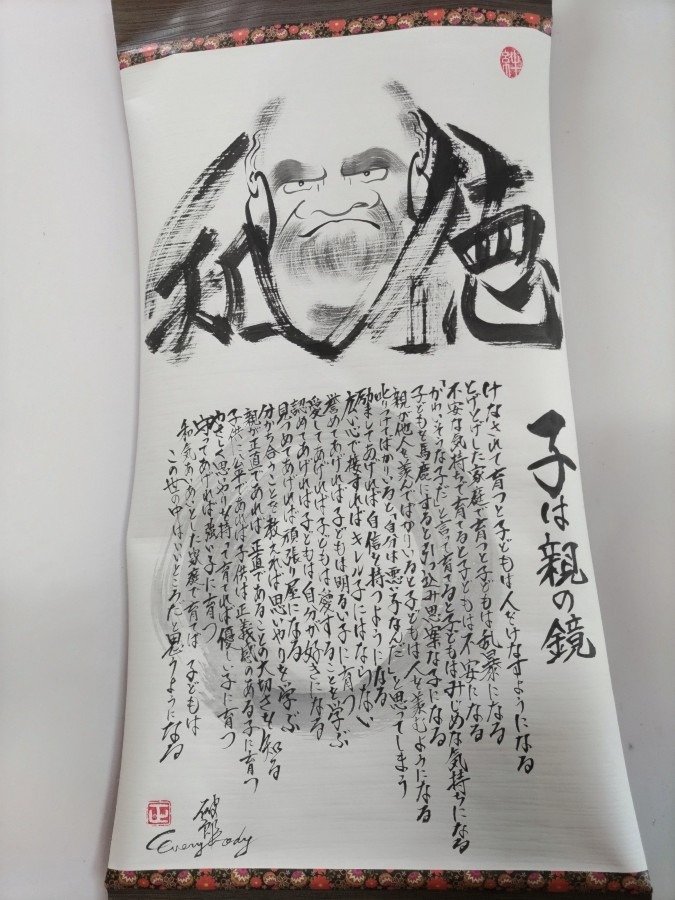 子は親の鏡
けなされて育つと子どもは人をけなすようになる
とげとげした家庭で育つと子どもは乱暴になる
不安な気持ちで育てると子どもは不安になる
「かわいそうな子だ」と言って育てると子どもはみじめな気持ちになる
子どもを馬鹿にすると引っ込み思案な子になる
親が他人を羨んでばかりいると子どもは人を羨むようになる
叱りつけてばかりいると「自分は悪い子なんだ」と思ってしまう
励ましてあげれば自信を持つようになる
広い心で接すればキレル子にはならない
誉めてあげれば子どもは明るい子に育つ
愛してあげれば子どもは愛することを学ぶ
認めてあげれば子どもは自分が好きになる
見つめてあげれば頑張り屋になる
分かち合うことを教えれば思いやりを学ぶ
親が正直であれば正直であることの大切さを知る
子供に公平であれば子供は正義感のある子に育つ
やさしく思いやりを持って育てれば優しい子に育つ
守ってあげれば強い子に育つ
和気あいあいとした家庭で育てば子どもは
この世の中はいいところだと思うようになる
Everybody